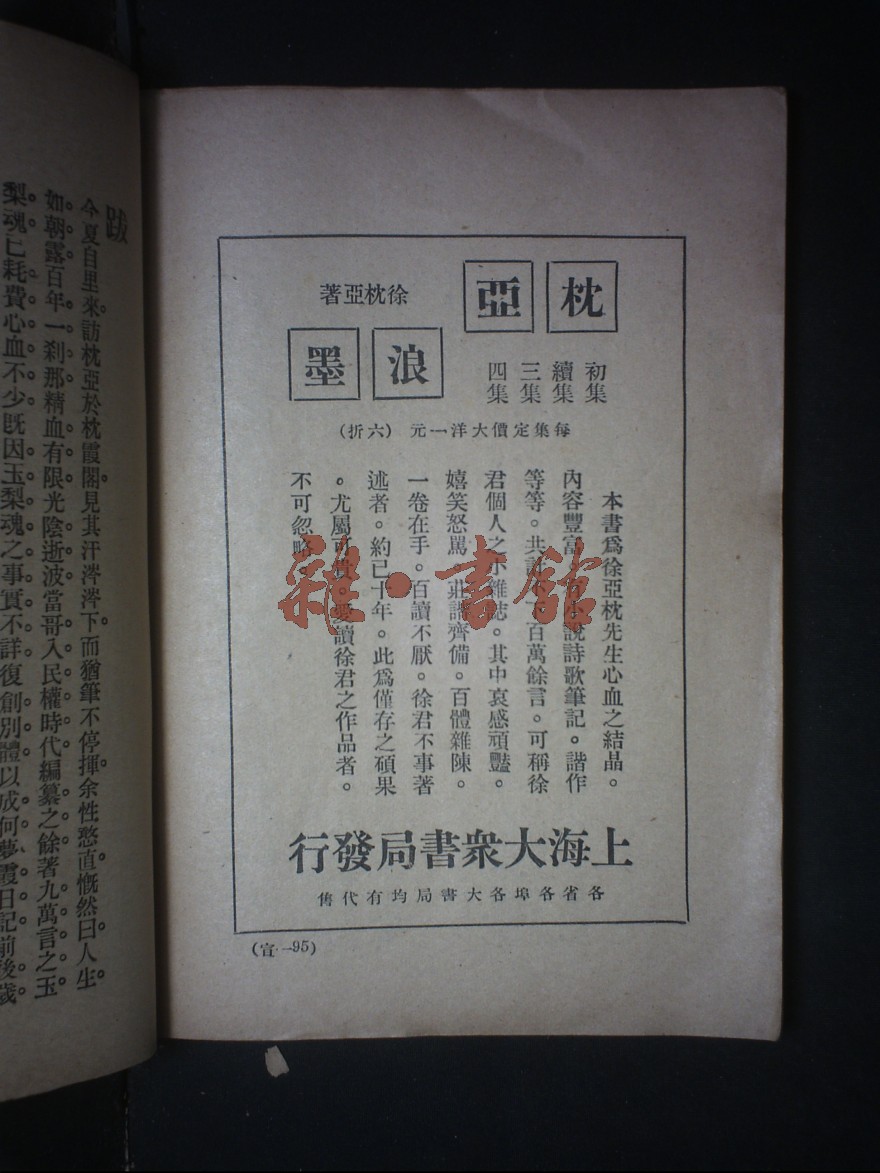 枕亞
浪墨
徐枕亞著
初集
續集
三集
四集
每集定價大洋一元(六折)
本書爲徐亞枕先生心血之結品。
內容豐富 小說詩歌筆記。諧作
等等。共 百萬餘言。可稱徐
君個人之小雜誌。其中哀感頑豔。
嬉笑怒罵。莊諧齊備。百體雜陳。
一卷在手。百讀不厭。徐君不事著
述者。約已十年。此爲僅存之碩果
。尤屬可貴。愛讀徐君之作品者。
不可忽略。
上海大衆書局發行
各省各埠各大書局均有代售
(宣·一95)
雜·書館
跋
今夏自里來訪枕亞於枕霞閣見其汗涔涔下而猶筆不停揮余性憨直慨然曰人生
如朝露百年一刹那精血有限光陰逝波當哥入民權時代編纂之餘著九萬言之玉
梨魂已耗費心血不少旣因玉梨魂之事實不詳復創別體以成何夢霞日記前後歲